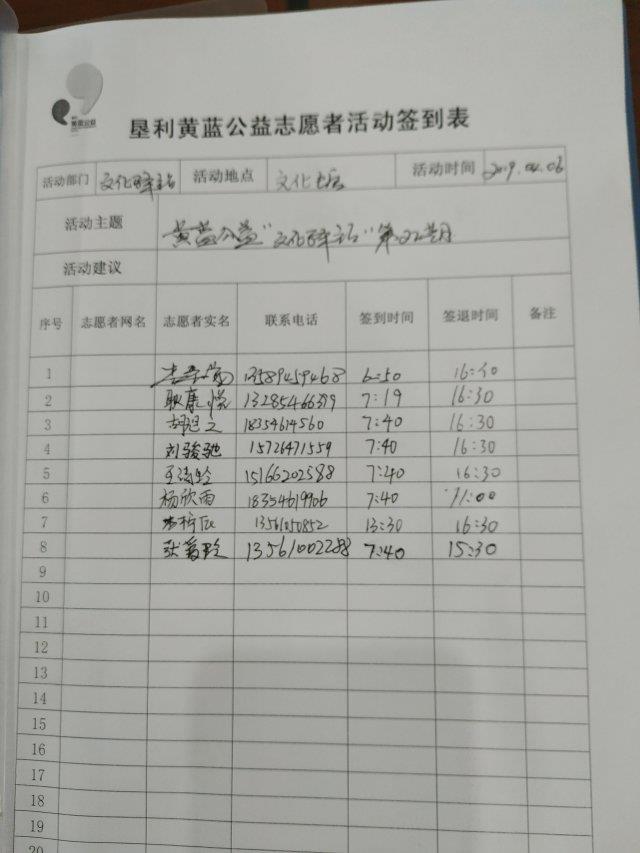 黄蓝公益
垦利黄蓝公益志愿者活动签到表
活动部门 文化驿站 活动地点 文化 活动时间 2019.04.06
活动主题 黄蓝公益"文化驿站"第22期
活动建议
序号 志愿者网名 志愿者实名 联系电话 签到时间 签退时间 备注
1 13589459468 6:50 16:30
2 耿康悦 7:19 16:30
3 18354614560 7:40 16:30
4 刘骏驰 15726471559 7:40 16:30
5 15166202588 7:40 16:30
6 杨欣雨 18354619906 7:40 11:00
7 13561050852 13:30 16:30
8 13561002288 7:40 15:30
9
10
11
12
13
14
15
16
17
18
19
20